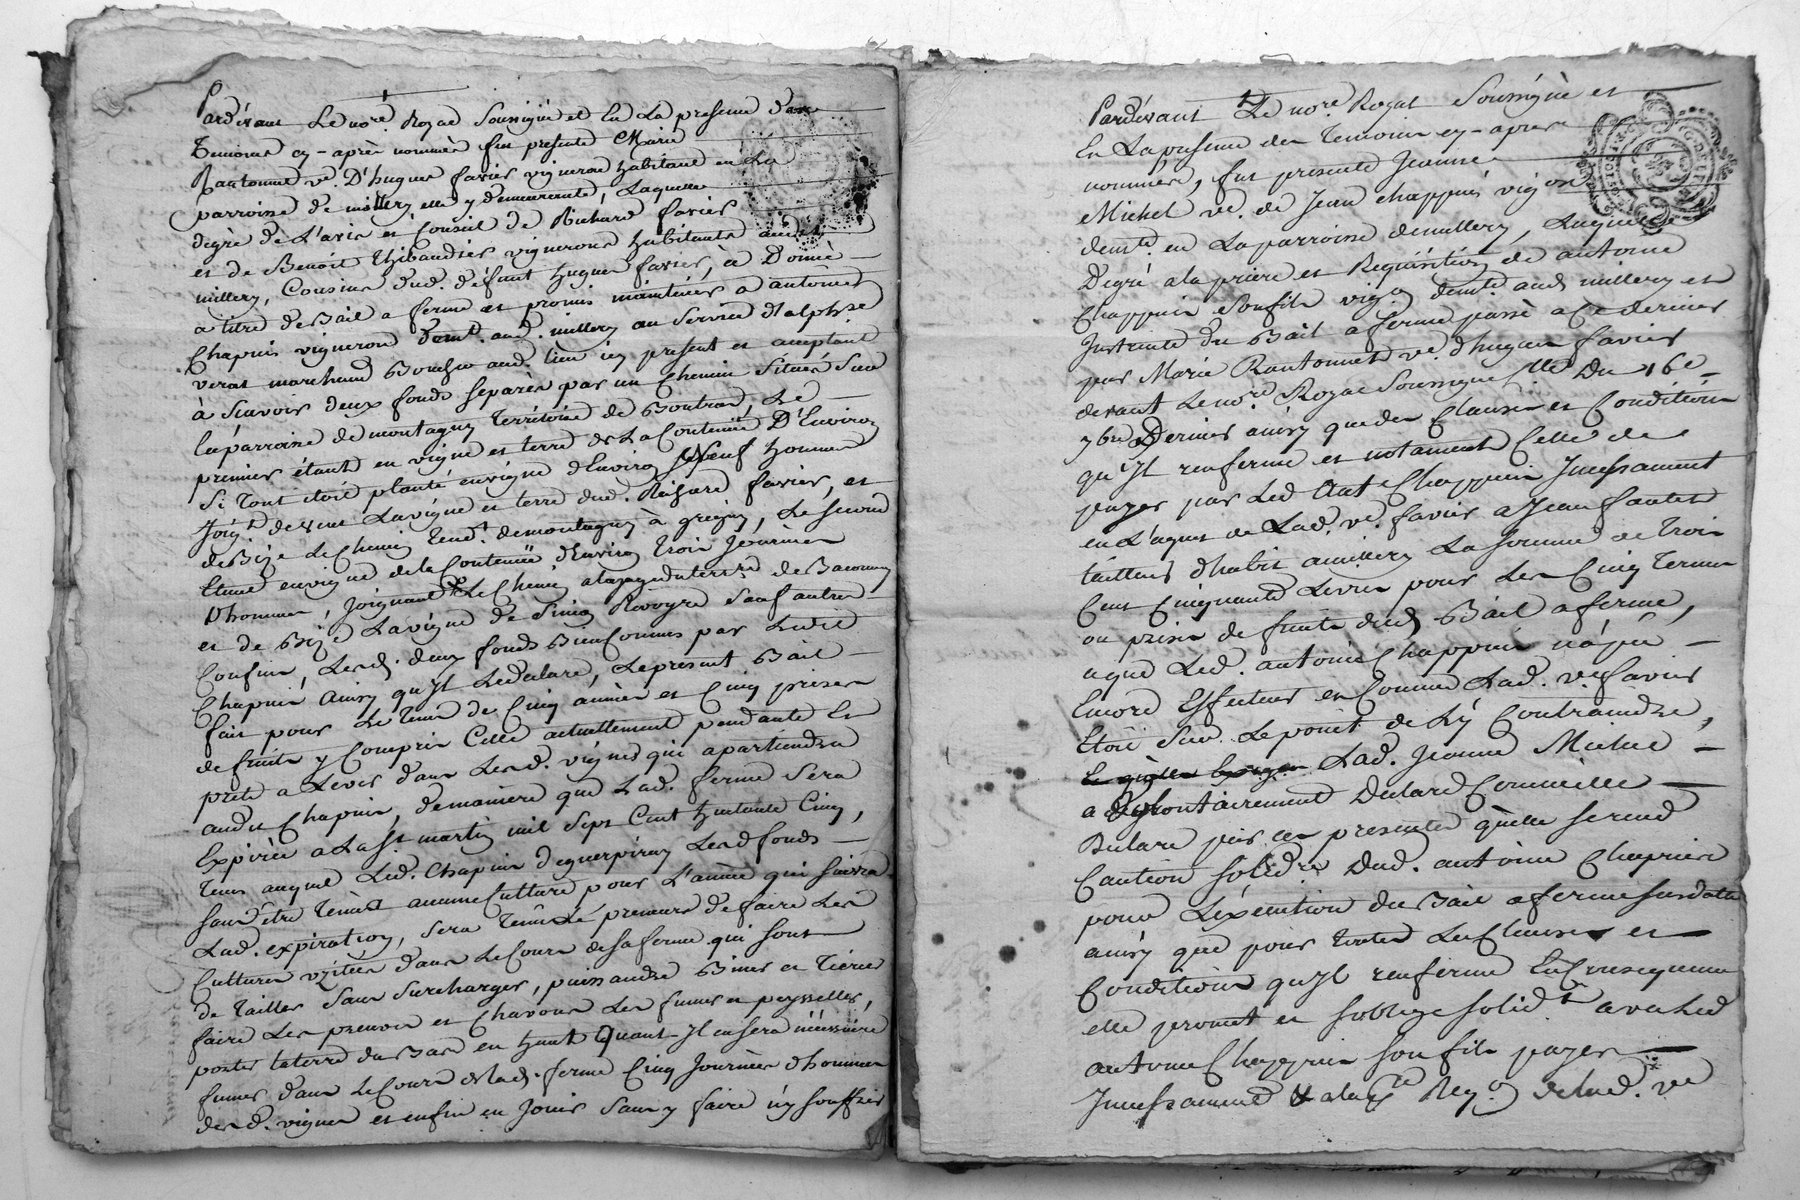 Pardevant Le no.re Royal Soussigné et En La presence des
Temoins cy-après nommés fut presente Marie
Rantonnet ve. D'hugues favier vigneron habitant en La
parroisse de millery elle y demeurante, Laquelle
degré de L'avis et Conseil de Richard favier
et de Benoit Thibaudier vignerons habitants audit
millery, Cousins dud. défunt hugues favier, a Donné
a titre de Bail a ferme et promis maintenir a antoine
Chapuis vigneron demt. aud. millery au Service
verat marchand Boucher aud. lieu icy present et acceptant
à Scavoir deux fonds separés par un Chemin Situés Sur
la parroisse de montagny Territoire de Boutrand Le
premier étant en vigne et terre de La Contenue D'Environ
Si Tout etoit planté en vigne d'Environ Neuf hommes
Joigt. de vent La vigne et terre dud. Richard favier, et
de Bize Le Chemin Tendt. de montagny à grigny, Le second
Etant en vigne de la Contenue d'Environ Trois Journées
D'hommes, Joignant Le Chemin
et de Bize La vigne de Sauf autres
Confins, Lesd. deux fonds Bien Connus par Ledit
Chapuis Ainsy qu'Il Le declare, Le present Bail
fait pour Le Tems de Cinq années et Cinq prises
de fruits y Compris Celle actuellement pendante Et
prete a Lever dans Lesd. vignes qui apartiendra
audit Chapuis, de maniere que Lad. ferme Sera
Expirée a La St martin mil Sept Cent huitante Cinq,
tems auquel Led. Chapuis deguerpira Lesd fonds
sans être Tenu a aucune Culture pour L'année qui suivra
Lad. expiration, Sera Tenu Le preneur de faire Les
Cultures usitées dans Le Cours de sa ferme qui sont
de Tailler Sans Surcharger, puissandre Biner et Tiercer
faire Les prenons et Chavons Les fumer et peysseller,
porter la terre du Bas en haut Quant Il en sera nécessaire
fumer dans Le Cours de lad. ferme Cinq Journées d'hommes
desd. vignes et enfin en Jouir Sans y faire n'y souffrir
Pardevant Le no.re Royal Soussigné et
En La presence des Temoins cy-après
nommés, fut presente Jeanne
Michel ve. de Jean chappuis vigon
demte. en La parroisse de millery, Laquelle
Degré a la priere et Requisition de antoine
Chappuis Son fils vig.on demt. aud. millery et
Instruite du Bail a ferme passé a Ce dernier
par Marie Rantonnet ve. d'hugues favier
devant Le no.re Royal Soussigné Le Du 16e
7bre Dernier ainsy que des Clauses et Conditions
qu'Il renferme et notament Celle de
payer par Led Ant. Chappuis Incessament
en L'aquit de Lad. ve. favier a Jean
tailleur d'habit a millery La somme de Trois
Cent Cinquante Livres pour Les Cinq Termes
ou prises de fruits dud. Bail a ferme,
a que Led. antoine Chappuis n'a pû
Encore Effectuer et Comme Lad. ve. favier
Etoit Sur Le point de Ly Contraindre,
Lad. Jeanne Michel
a volontairement Declaré Comme elle
Declare par Ces presentes qu'elle se rend
Caution solid.re Dud. antoine Chappuis
pour L'éxecution du Bail a ferme susdatté
ainsy que pour toutes Les Clauses et
Conditions qu'Il renferme En Consequence
elle promet et soblige solid.t avec Led
antoine Chappuis Son fils payer
Incessament a la 1.re Reqon de lad. ve